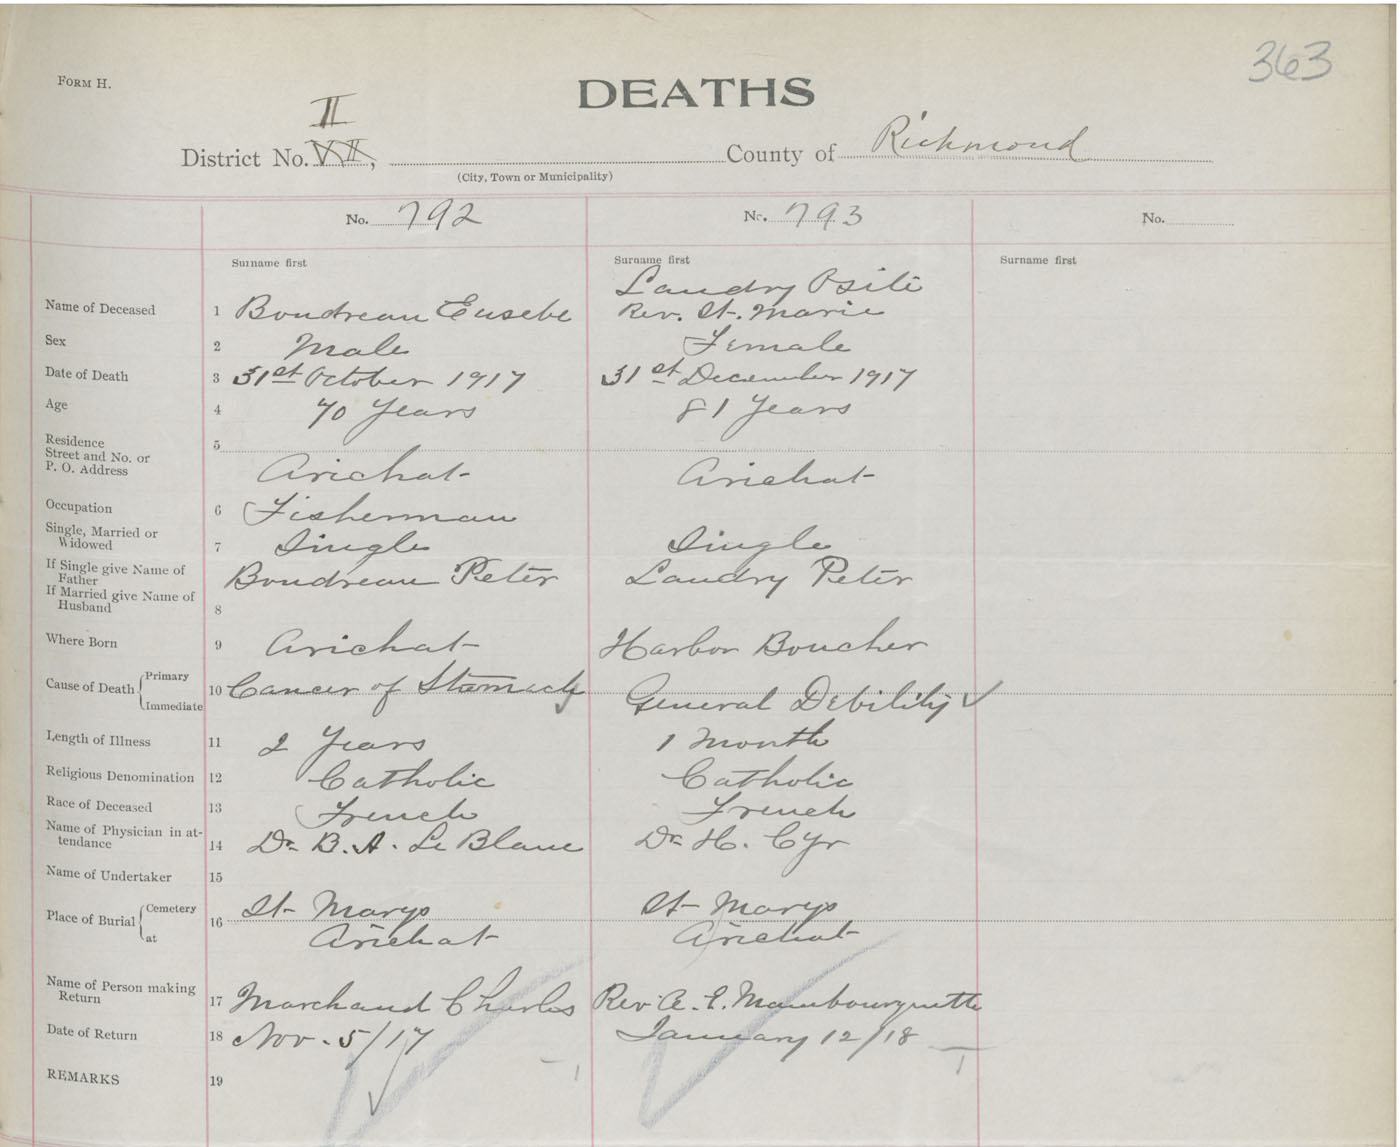 363
FORM H.
DEATHS
II
District No. VII, County of Richmond
(City, Town or Municipality)
No. 792 No. 793 No.
Surname first Surname first Surname first
Landry Osite
Name of Deceased 1 Boudreau Eusebe Rev. St. Marie
Sex 2 Male Female
Date of Death 3 31st October 1917 31st December 1917
Age 4 70 Years 81 Years
Residence 5
Street and No. or
P. O. Address Arichat Arichat
Occupation 6 Fisherman
Single, Married or
Widowed 7 Single Single
If Single give Name of
Father Boudreau Peter Landry Peter
If Married give Name of
Husband 8
Where Born 9 Arichat Harbor Boucher
Cause of Death Primary
Immediate 10 Cancer of Stomach General Debility
Length of Illness 11 2 Years 1 Month
Religious Denomination 12 Catholic Catholic
Race of Deceased 13 French French
Name of Physician in at-
tendance 14 Dr. B. A. Le Blanc Dr. H. Cyr
Name of Undertaker 15
Place of Burial Cemetery 16 St Marys St Marys
at Arichat Arichat
Name of Person making
Return 17 Marchand Charles Rev. A. E. Mombourquette
Date of Return 18 Nov. 5/17 January 12/18
REMARKS 19